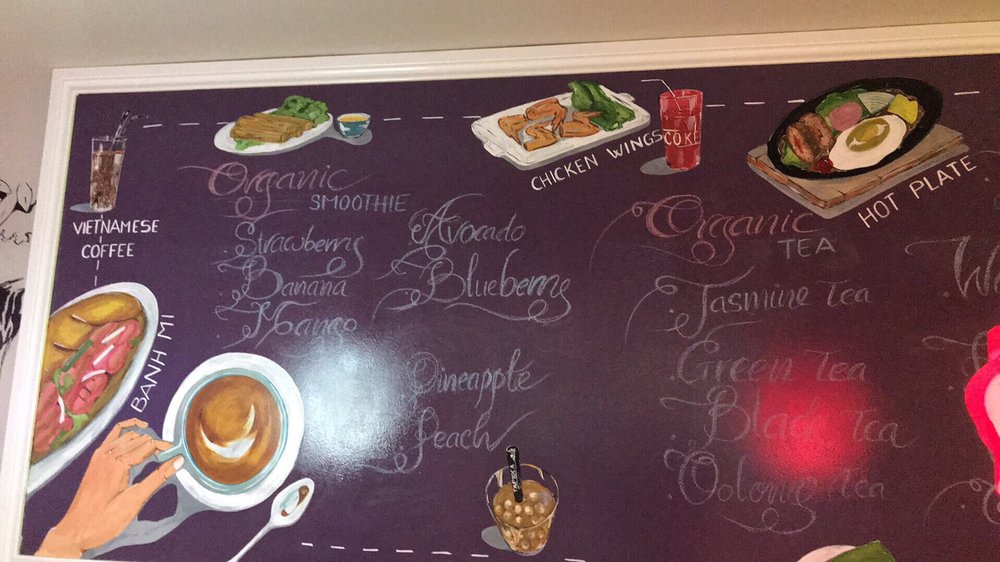 VIETNAMESE
COFFEE
BANH MI
Organic
SMOOTHIE
Strawberry
Banana
Mango
Avocado
Blueberry
Pineapple
Peach
CHICKEN WINGS
COKE
HOT PLATE
Organic
TEA
Jasmine Tea
Green Tea
Black Tea
Oolong Tea